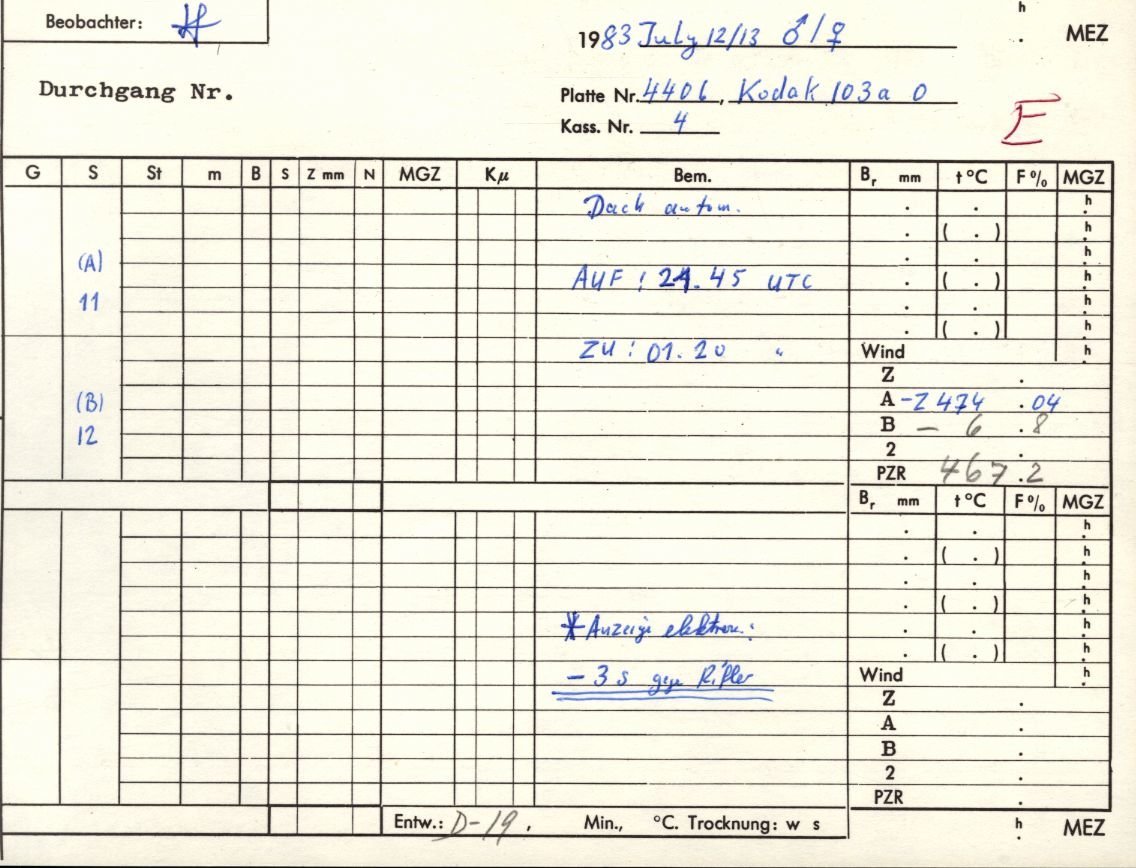 Beobachter: H
h
1983 July 12/13 ♂/♀ . MEZ
Durchgang Nr.
Platte Nr. 4406, Kodak 103a O
Kass. Nr. 4
E
G S St m B S Z mm N MGZ Kµ Bem. Br mm t °C F% MGZ
Dach autom. . . h
. ( . ) h
(A) . . h
AUF : 21.45 UTC . ( . ) h
11 . . h
. ( . ) h
ZU : 01.20 " Wind h
Z .
(B) A -Z 474 .04
12 B - 6 .8
2 .
PZR 467.2
Br mm t °C F% MGZ
. . h
. ( . ) h
. . h
. ( . ) h
* Anzeige elektron.: . . h
. ( . ) h
- 3 s gegen Rifler Wind h
Z .
A .
B .
2 .
PZR .
Entw.: D-19, Min., °C. Trocknung: w s h . MEZ